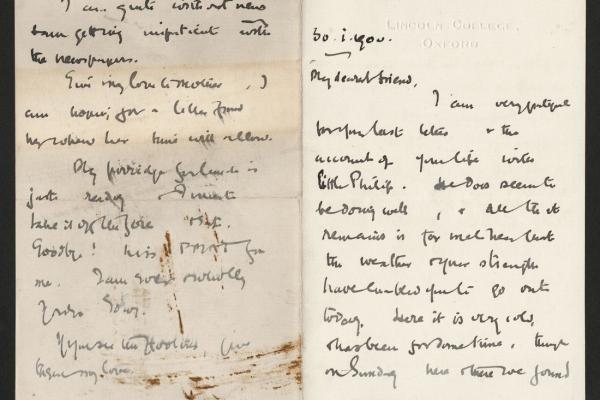 I am quite without news
& am getting impatient with
the newspapers.
Give my love to Mother, I
am hoping for a letter from
her when her time will allow.
My porridge for lunch is
just ready & I must
take it off the fire
Goodbye! Kiss for
me. I am ever wholly
yours
If you see the
them my love.
LINCOLN COLLEGE,
OXFORD
30.i.900.
My dearest friend,
I am very grateful
for your last letter & the
account of your life with
little Philip. He does seem to
be doing well, & all that
remains is for me to hear that
the weather & your strength
have enabled you to go out
today. Here it is very cold,
& has been for some time, though
on Sunday here & there we found